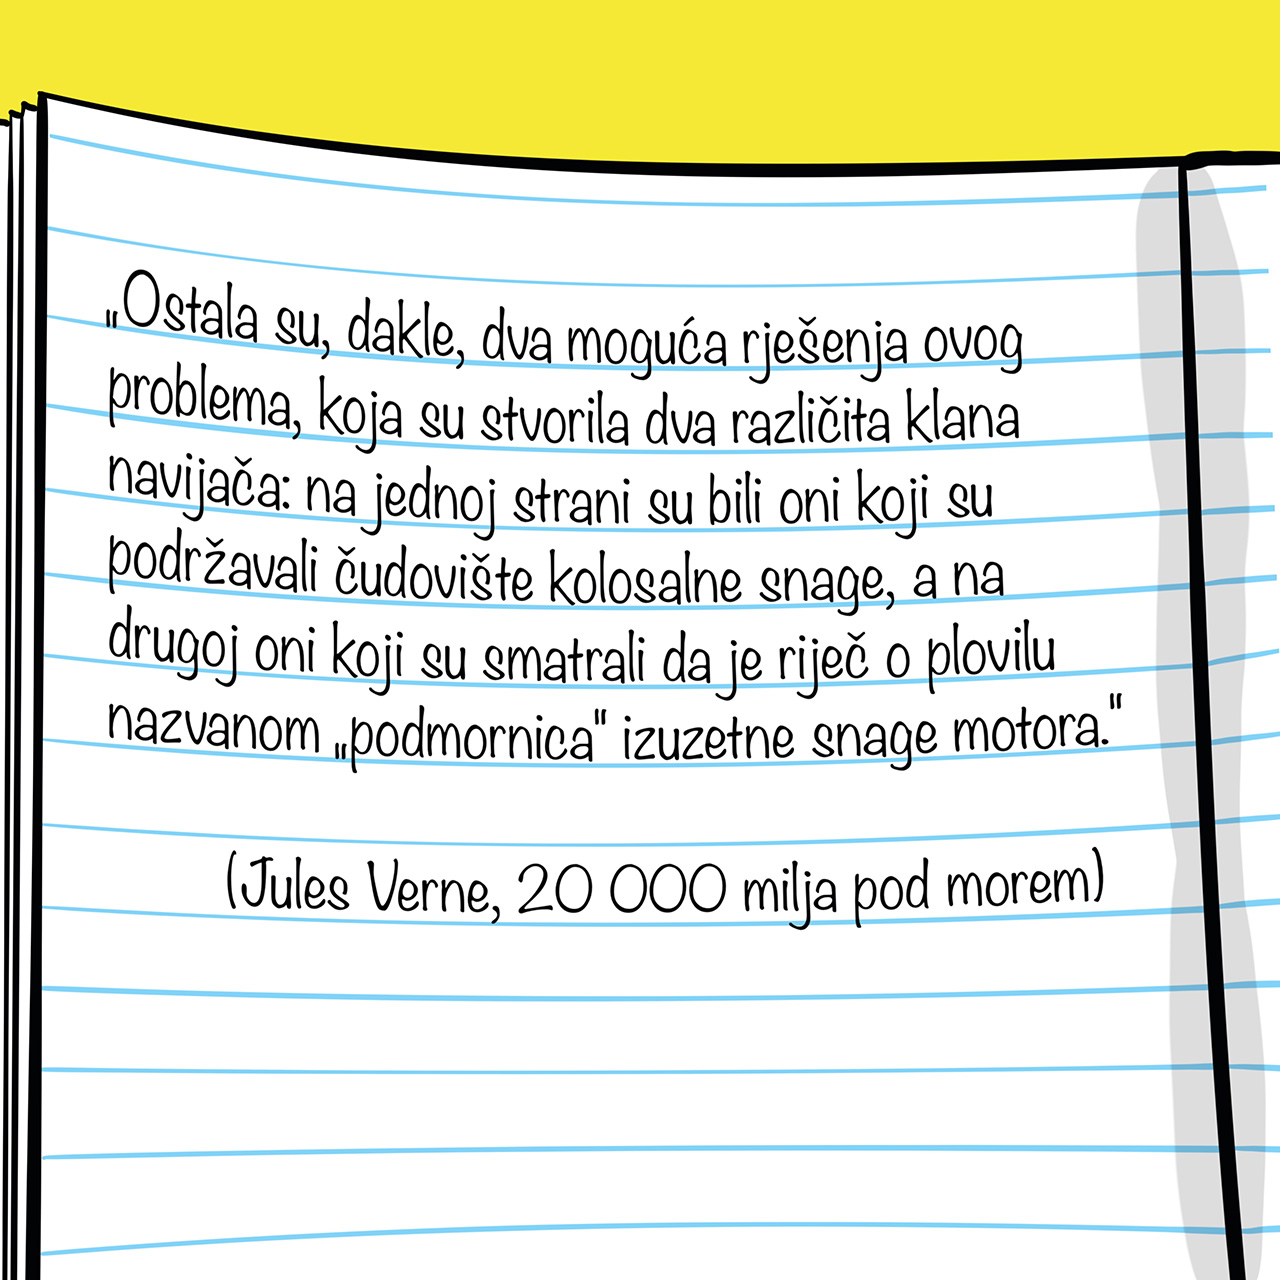 „Ostala su, dakle, dva moguća rješenja ovog
problema, koja su stvorila dva različita klana
navijača: na jednoj strani su bili oni koji su
podržavali čudovište kolosalne snage, a na
drugoj oni koji su smatrali da je riječ o plovilu
nazvanom „podmornica" izuzetne snage motora."
(Jules Verne, 20 000 milja pod morem)